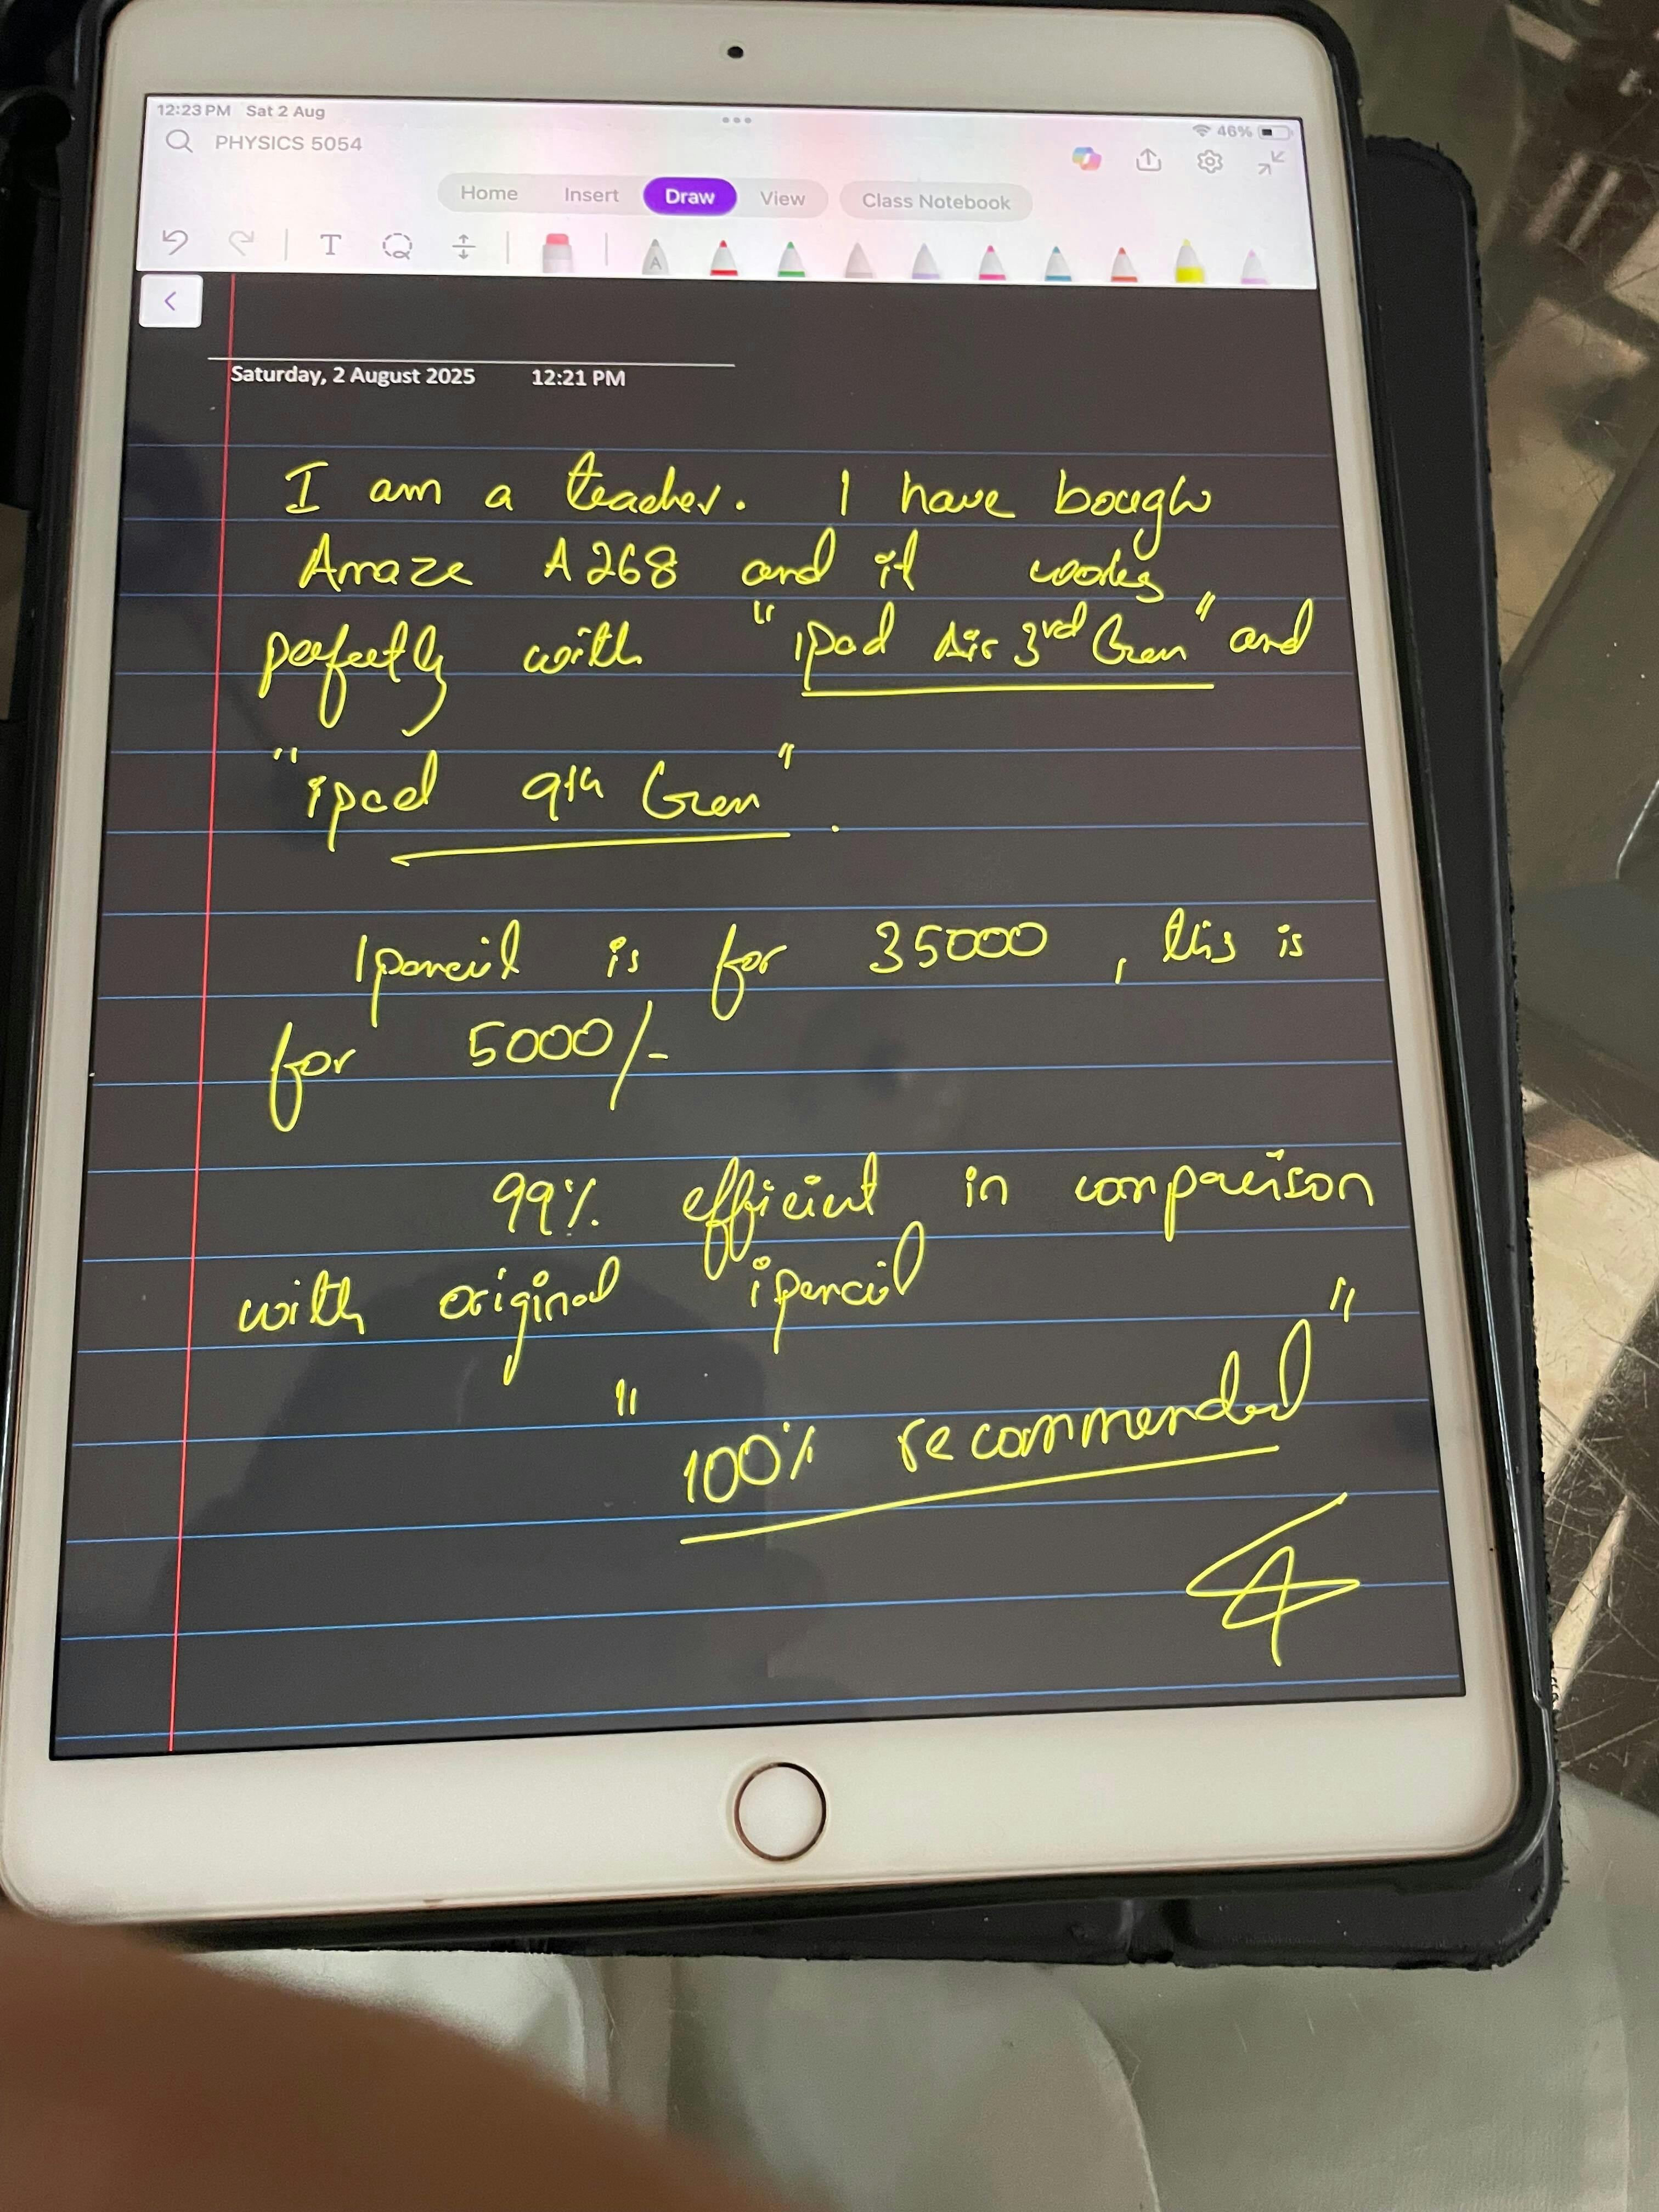 12:23 PM Sat 2 Aug
46%
PHYSICS 5054
Home Insert Draw View Class Notebook
T A
Saturday, 2 August 2025 12:21 PM
I am a teacher. I have bough
Amaze A268 and it works
perfectly with "ipad Air 3rd Gen" and
"ipad 9th Gen".
Ipencil is for 35000, this is
for 5000/-
99% efficient in comparison
with original ipencil
"100% recommended"